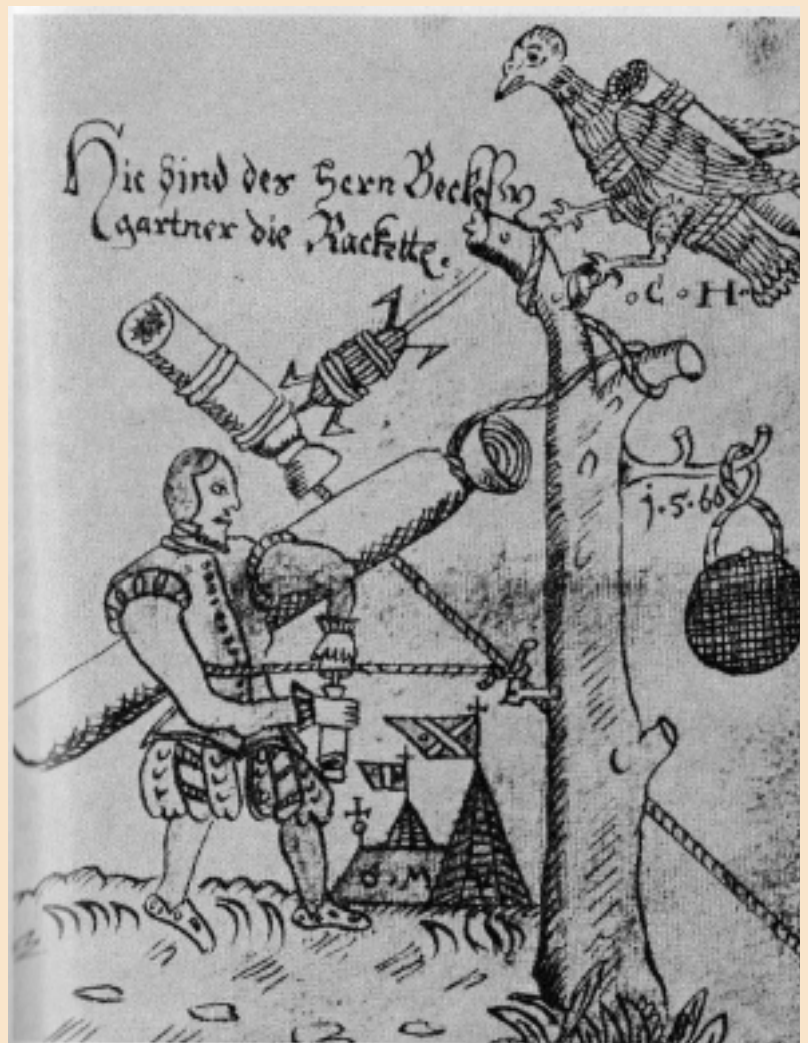 Hie sind des Hern
gartner die Rackette.
. C . H .
j . 5 . 60